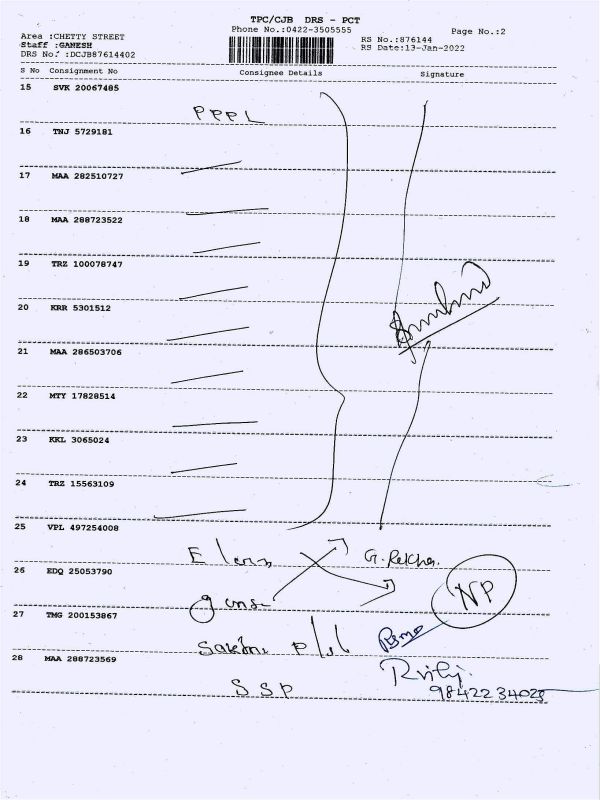 TPC/CJB DRS - PCT
Phone No.:0422-3505555
Page No.:2
Area :CHETTY STREET
RS No.:876144
Staff :GANESH
RS Date:13-Jan-2022
DRS No. :DCJB87614402
S No Consignment No Consignee Details Signature
15 SVK 20067485
PPPL
16 TNJ 5729181
17 MAA 282510727
18 MAA 288723522
19 TRZ 100078747
20 KRR 5301512
21 MAA 286503706
22 MTY 17828514
23 KKL 3065024
24 TRZ 15563109
25 VPL 497254008
26 EDQ 25053790
NP
27 TMG 200153867
28 MAA 288723569
SSP